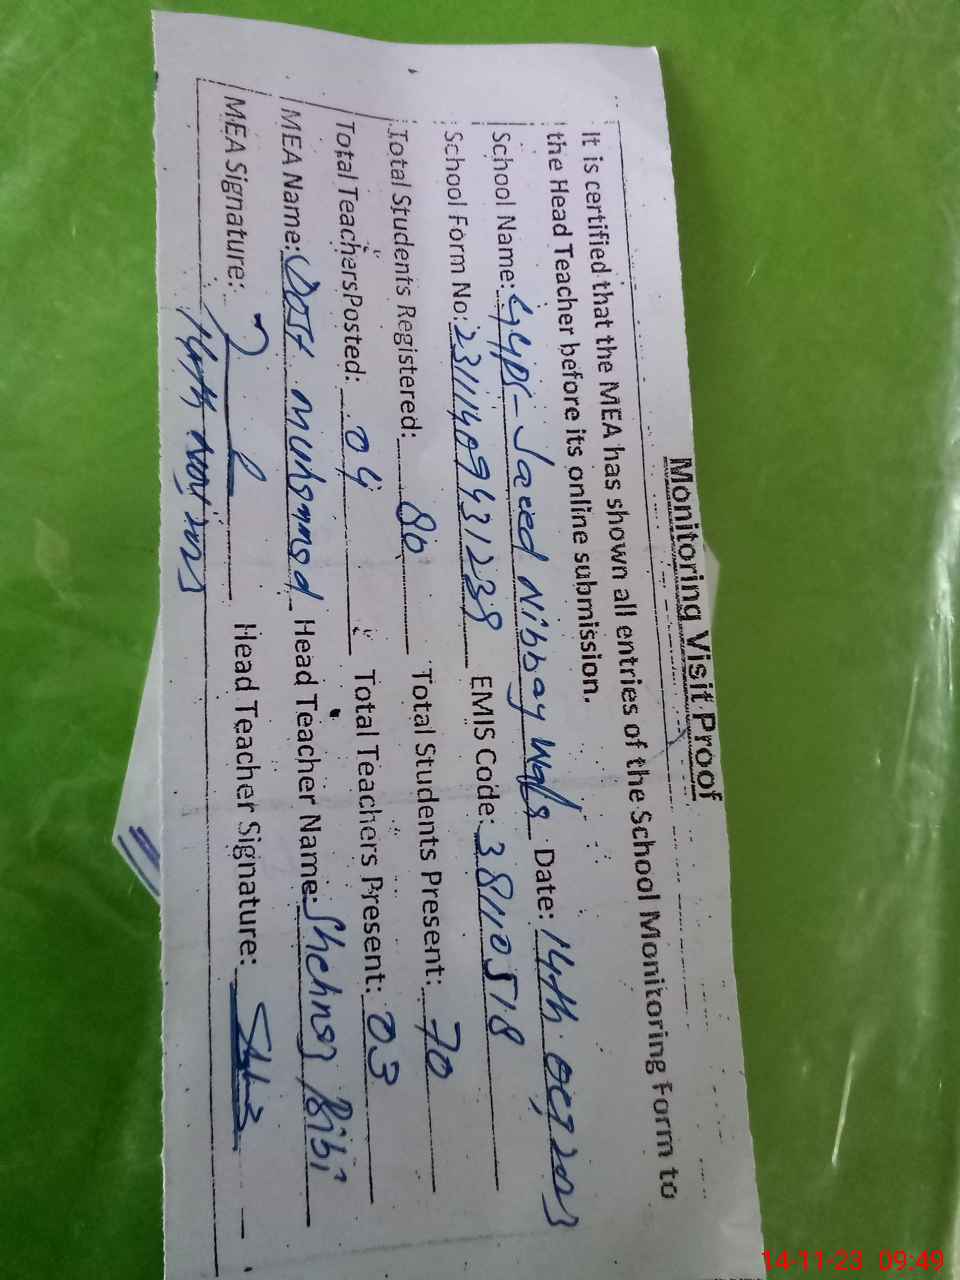 Monitoring Visit Proof
It is certified that the MEA has shown all entries of the School Monitoring Form to
the Head Teacher before its online submission.
School Name: GGPS-Jaeed Nibbay Wala Date: 14th Oct, 2023
School Form No: EMIS Code: 38110518
Total Students Registered: 86 Total Students Present: 70
Total Teachers Posted: 04 Total Teachers Present: 03
MEA Name: Dost Muhammad Head Teacher Name: Shehnaz Bibi
MEA Signature: Head Teacher Signature:
14th Nov 2023
14-11-23 09:49